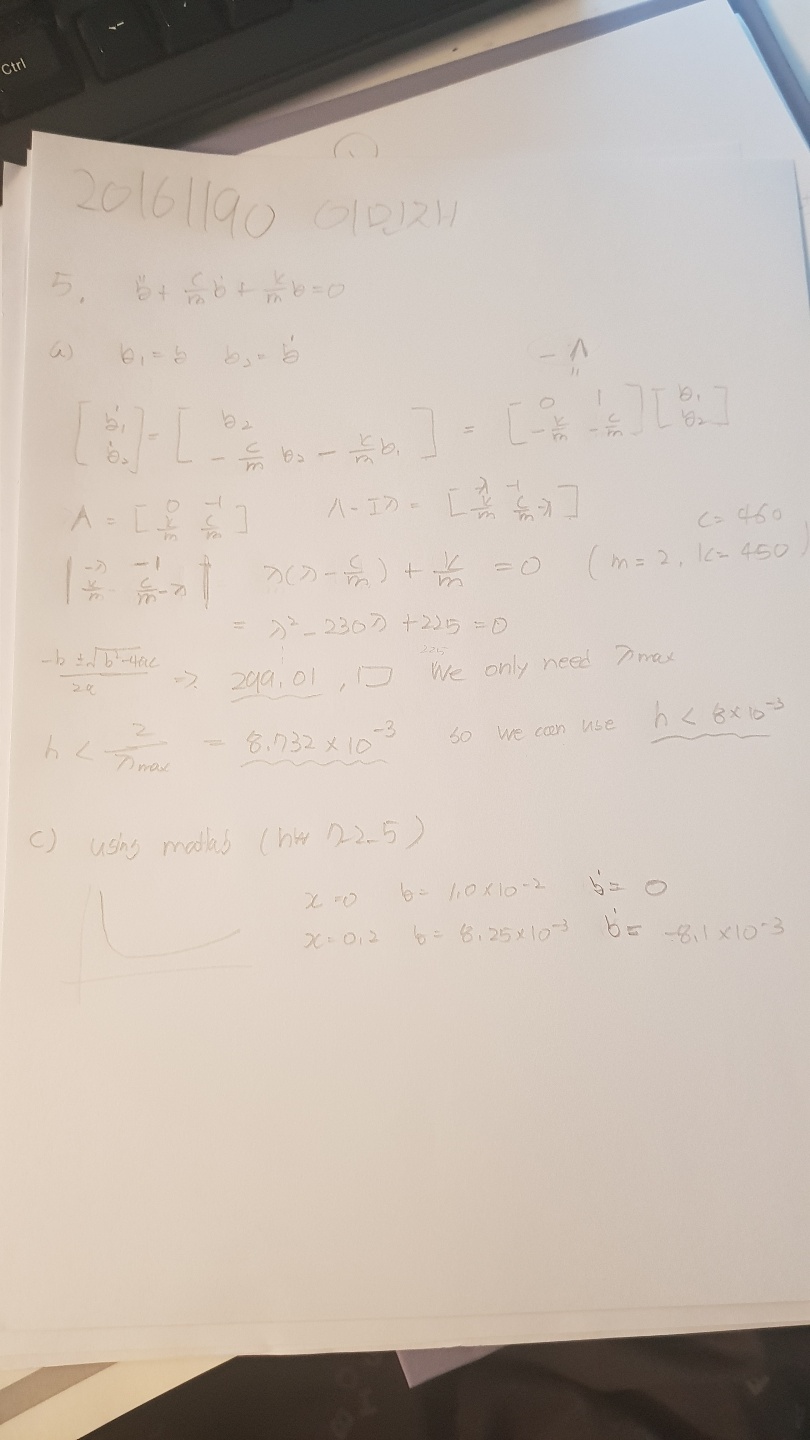 Ctrl
20161190 이민재
5. b̈ + c/m ḃ + k/m b = 0
a) b₁ = b b₂ = ḃ
- A
"
[ḃ₁ ; ḃ₂] = [b₂ ; - c/m b₂ - k/m b₁] = [0 1 ; -k/m -c/m] [b₁ ; b₂]
A = [0 -1 ; k/m c/m] A - Iλ = [λ -1 ; k/m c/m-λ] c = 460
|-λ -1 ; k/m c/m-λ| λ(λ - c/m) + k/m = 0 (m = 2, k = 450)
= λ² - 230λ + 225 = 0
-b ±√b²-4ac / 2a => 299.01, □ We only need λmax
h < 2/λmax = 8.732 × 10⁻³ so we can use h < 8×10⁻³
c) using matlab (hw 22-5)
x = 0 b = 1.0×10⁻² ḃ = 0
x = 0.2 b = 8.25×10⁻³ ḃ = -8.1×10⁻³